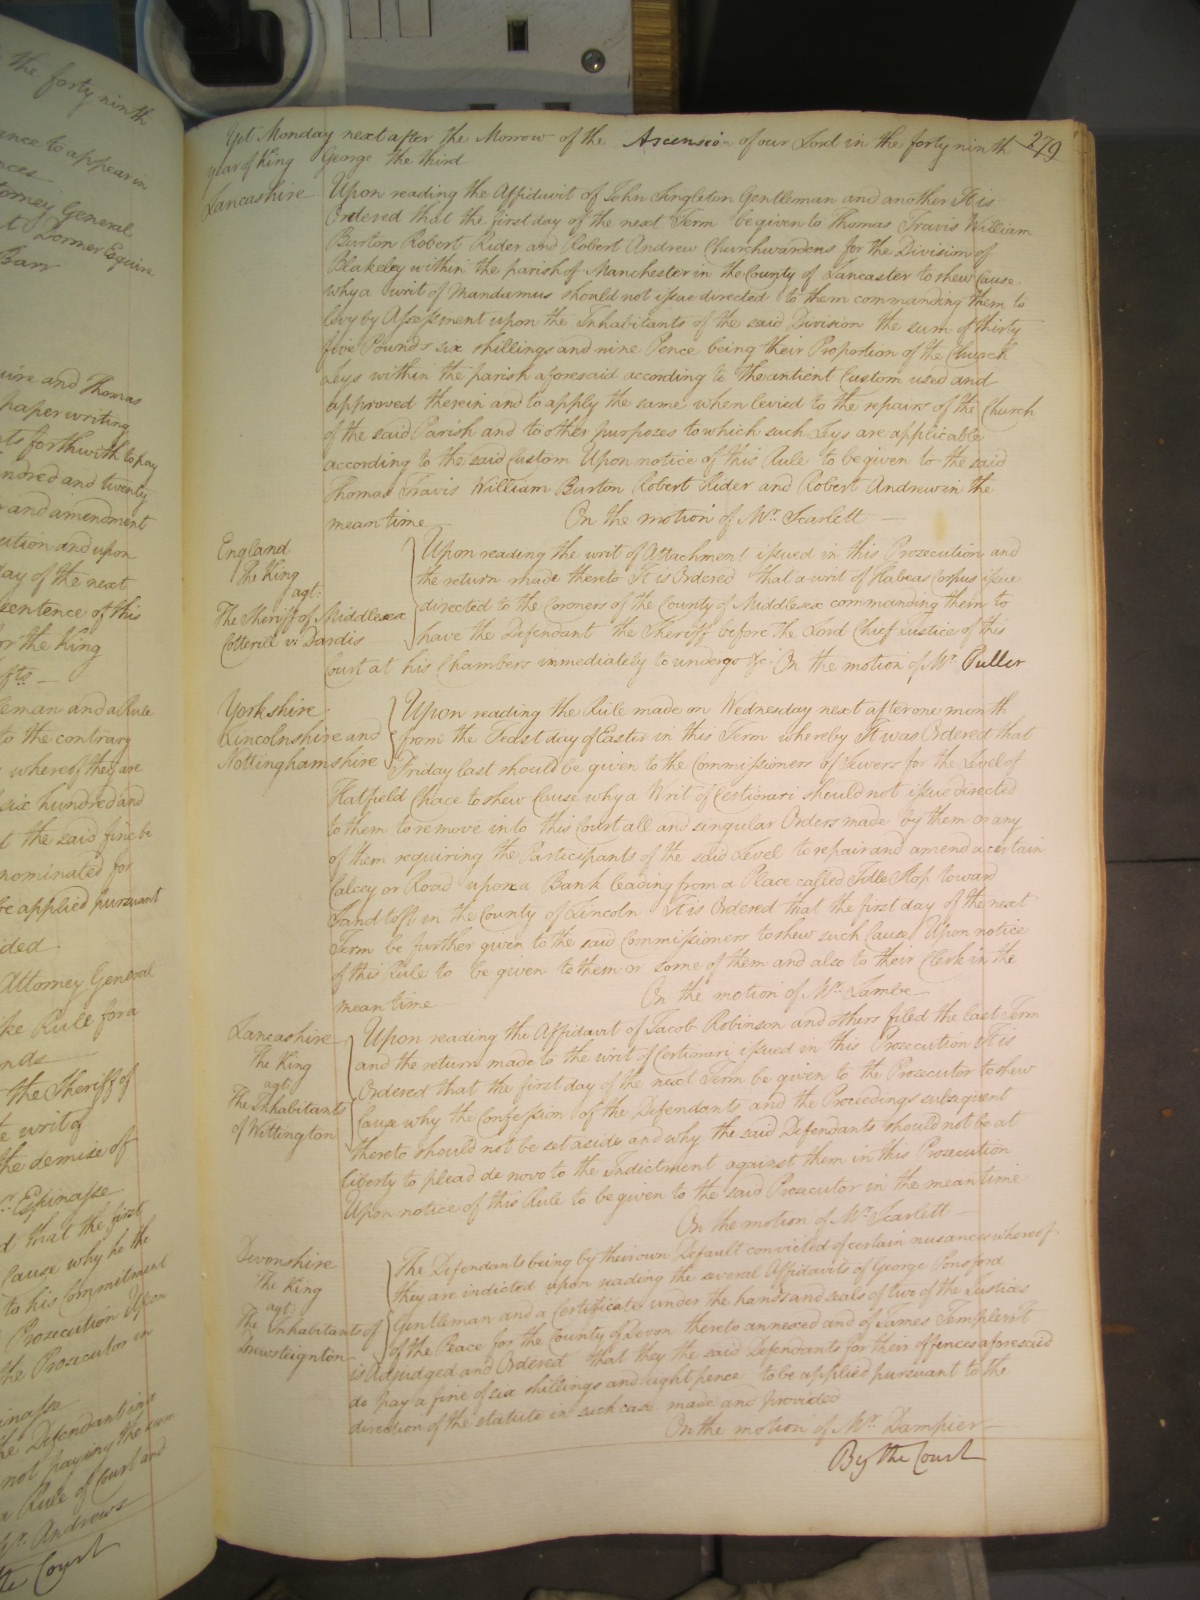 the forty ninth
ance to appear in
nces
torney General
t Lormer Esquire
Barr
uire and Thomas
paper writing
nts forthwith to pay
ndred and twenty
and amendment
cution and upon
day of the next
sentence of this
or the King
fts
leman and a Rule
to the contrary
whereof they are
six hundred and
t the said fine be
nominated for
be applied pursuant
ided
Attorney General
ike Rule for a
nds
the Sheriff of
te writ of
the demise of
Mr. Espinasse
d that the first
Cause why he the
to his Commitment
Prosecution Upon
the Prosecutor in
inasse
he Defendant in
not paying the sum
a Rule of Court and
Mr. Andrews
the Court
279
Yet Monday next after the Morrow of the Ascension of our Lord in the forty ninth
year of King George the third
Lancashire Upon reading the Affidavit of John Singleton Gentleman and another It is
Ordered that the first day of the next Term be given to Thomas Travis William
Burton Robert Rider and Robert Andrew Churchwardens for the Division of
Blakeley within the parish of Manchester in the County of Lancaster to shew Cause
why a writ of Mandamus should not issue directed to them commanding them to
levy by Assessment upon the Inhabitants of the said Division the sum of thirty
five Pounds six shillings and nine Pence being their Proportion of the Church
Leys within the parish aforesaid according to the antient Custom used and
approved therein and to apply the same when levied to the repairs of the Church
of the said Parish and to other purposes to which such Leys are applicable
according to the said Custom Upon notice of this Rule to be given to the said
Thomas Travis William Burton Robert Rider and Robert Andrew in the
mean time On the motion of Mr. Scarlett
England
The King
agt.
The Sheriff of Middlesex
Cotterill v. Dardis
Upon reading the writ of Attachment issued in this Prosecution and
the return made thereto It is Ordered that a writ of Habeas Corpus issue
directed to the Coroners of the County of Middlesex commanding them to
have the Defendant the Sheriff before the Lord Chief Justice of this
Court at his Chambers immediately to undergo &c. On the motion of Mr. Puller
Yorkshire
Lincolnshire and
Nottinghamshire
Upon reading the Rule made on Wednesday next after one month
from the Feast day of Easter in this Term whereby It was Ordered that
Friday last should be given to the Commissioners of Sewers for the Level of
Hatfield Chace to shew Cause why a Writ of Certiorari should not issue directed
to them to remove into this Court all and singular Orders made by them or any
of them requiring the Participants of the said Level to repair and amend a certain
Calcey or Road upon a Bank leading from a Place called Tille Stop toward
Sandtoft in the County of Lincoln It is Ordered that the first day of the next
Term be further given to the said Commissioners to shew such Cause Upon notice
of this Rule to be given to them or some of them and also to their Clerk in the
mean time On the motion of Mr. Lambe
Lancashire
The King
agt.
The Inhabitants
of Wittington
Upon reading the Affidavit of Jacob Robinson and others filed the last Term
and the return made to the writ of Certiorari issued in this Prosecution It is
Ordered that the first day of the next Term be given to the Prosecutor to shew
Cause why the Confession of the Defendants and the Proceedings subsequent
thereto should not be set aside and why the said Defendants should not be at
liberty to plead de novo to the Indictment against them in this Prosecution
Upon notice of this Rule to be given to the said Prosecutor in the mean time
On the motion of Mr. Scarlett
Devonshire
The King
agt.
The Inhabitants of
Drewsteignton
The Defendants being by their own Default convicted of certain nusances whereof
they are indicted upon reading the several Affidavits of George Ponsford
Gentleman and a Certificate under the hands and seals of two of the Justices
of the Peace for the County of Devon thereto annexed and of James Templer It
is Adjudged and Ordered that they the said Defendants for their offences aforesaid
do pay a fine of six shillings and eight pence to be applied pursuant to the
direction of the statute in such case made and provided
On the motion of Mr. Dampier
By the Court